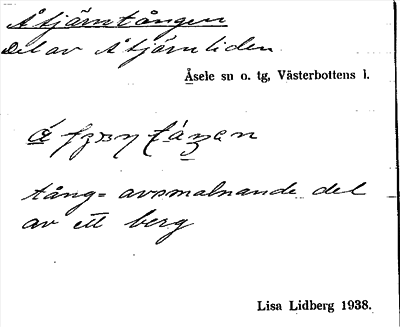 Åtjärntången
Del av Åtjärnliden
Åsele sn o. tg, Västerbottens l.
tång= avsmalnande del
av ett berg
Lisa Lidberg 1938.